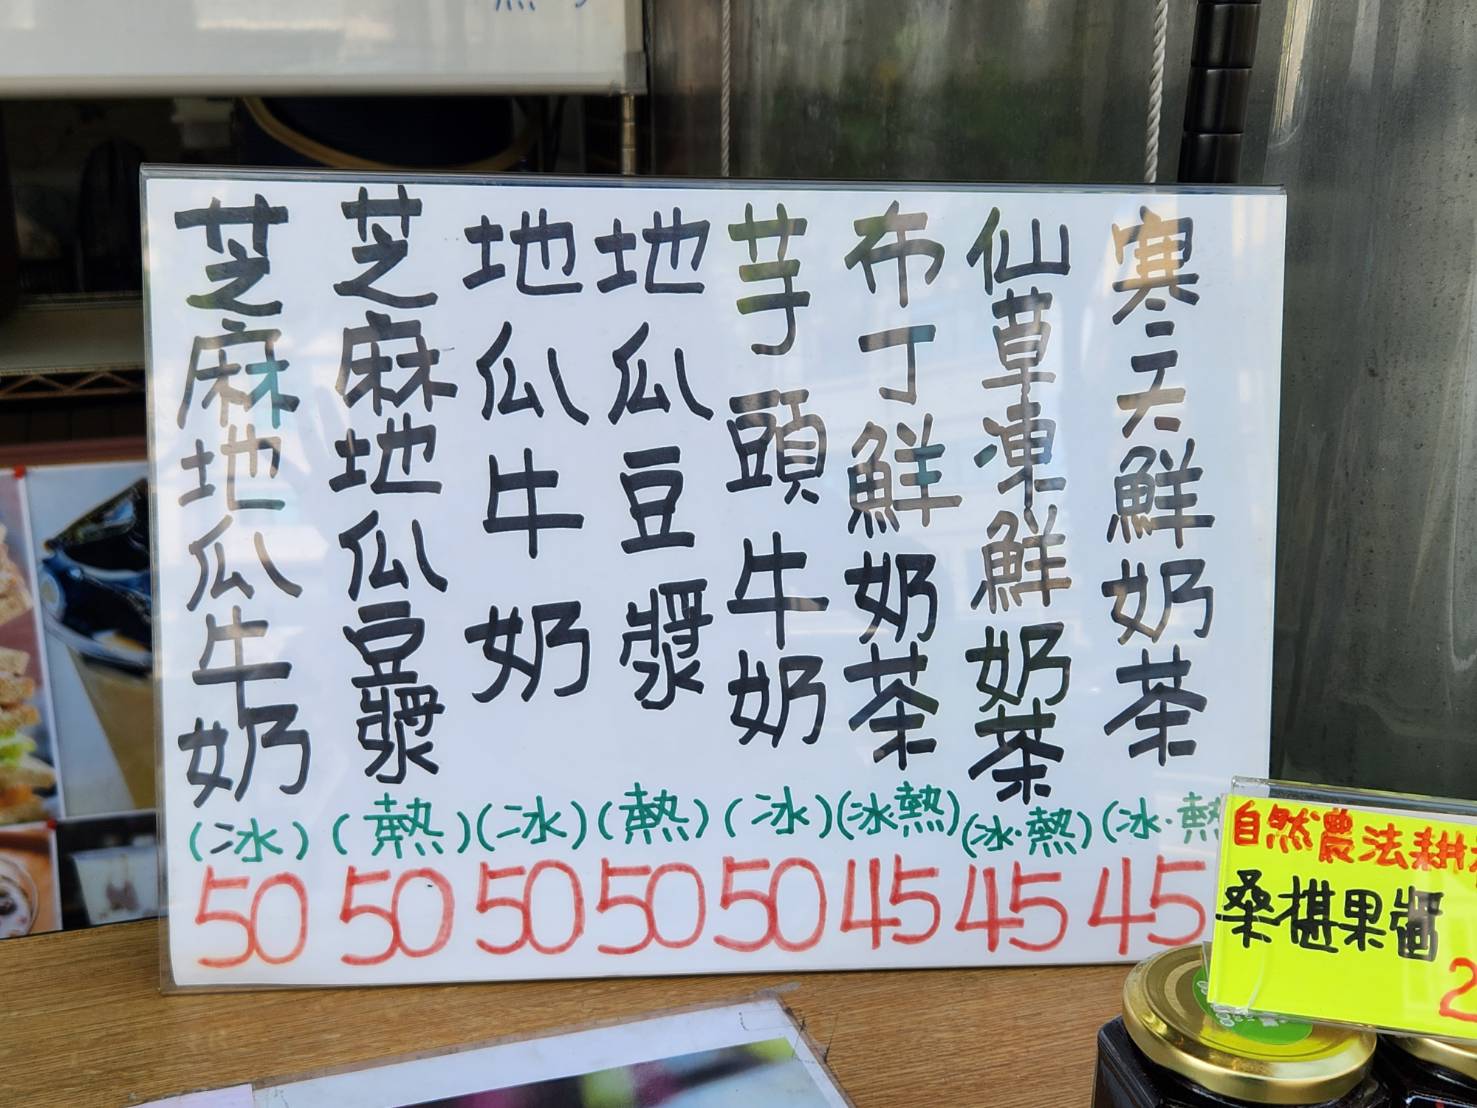 寒天鮮奶茶
(冰.熱
45
仙草凍鮮奶茶
(冰.熱)
45
布丁鮮奶茶
(冰熱)
45
芋頭牛奶
(冰)
50
地瓜豆漿
(熱)
50
地瓜牛奶
(冰)
50
芝麻地瓜豆漿
(熱)
50
芝麻地瓜牛奶
(冰)
50
自然農法耕
桑椹果醬
2